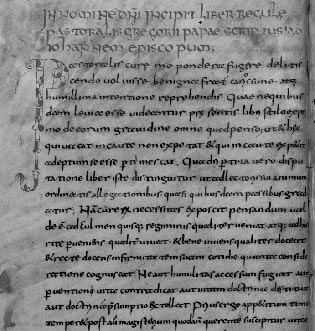 IN NOMINE DNI INCIPIT LIBER REGULE
PASTORALIS GREGORII PAPAE SCRIPTUS AD
IOHANNEM EPISCOPUM
Pastoralis curae me pondera fugere delites
cendo voluisse benigna frater carissime atq;
humillima intentione reprehendis Quae ne quibus
dam levia esse videantur praesentis libri stilo exp
mo de eorum gravidine omne quod penso ut & h
qui vacat incaute non expetat & qui incaute expetit
adeptum se esse pertimescat Quadri pertita vero dispu
tatione liber iste distinguitur ut ad lectoris sui animum
ordinatis allegationibus quasi quibusdam passibus gra
datur Nam cum rerum necessitas exposcit pensandum val
de e ad culmen quisq; regiminis qualiter veniat atq; ad h
rite perveniens qualiter vivat & bene vivens qualiter doceat
& recte docens infirmitatem suam cotidie quanta conside
ratione cognoscat Ne aut humilitas accessum fugiat aut
perventioni vita contradicat aut vitam doctrina destituat
aut doctrina praesumptio extollat